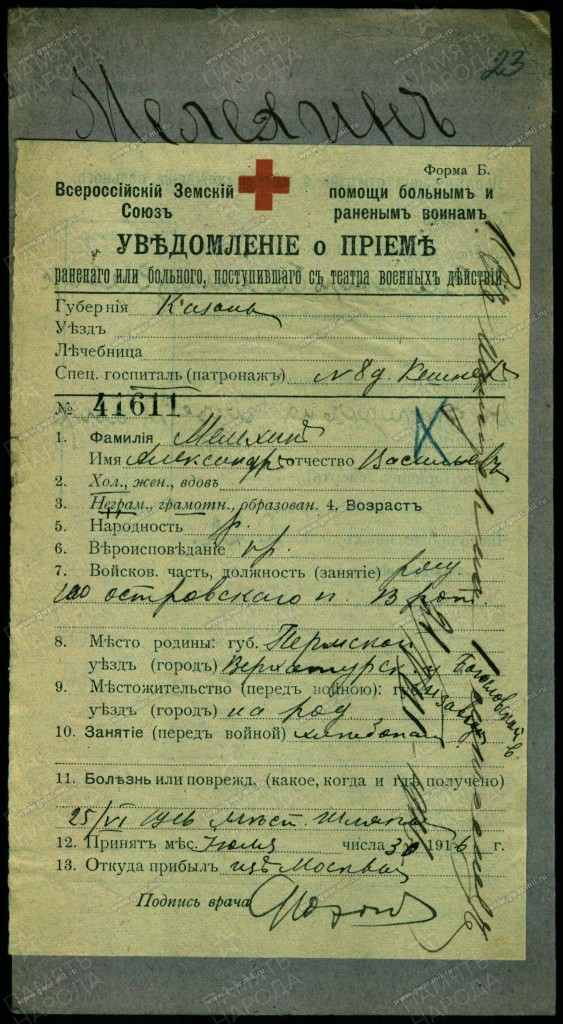 23
Мелехинъ
Форма Б.
Всероссійскій Земскій
Союзъ
помощи больнымъ и
раненымъ воинамъ
УВѢДОМЛЕНІЕ о ПРІЕМѢ
раненаго или больного, поступившаго съ театра военныхъ дѣйствій.
Губернія Казань
Уѣздъ
Лѣчебница
Спец. госпиталь (патронажъ) №8
№ 41611
1. Фамилія Мелехинъ
Имя Александръ отчество Васильевъ
2. Хол., жен., вдовъ
3. Неграм., грамотн., образован. 4. Возрастъ
5. Народность р.
6. Вѣроисповѣданіе пр.
7. Войсков. часть, должность (занятіе) ряд.
островскаго п. 13 рот.
8. Мѣсто родины: губ. Пермской
уѣздъ (городъ) Верхотурск. у Богословской в.
9. Мѣстожительство (передъ войною): губ.
уѣздъ (городъ) на род.
10. Занятіе (передъ войной) хлѣбопаш
11. Болѣзнь или поврежд. (какое, когда и гдѣ получено)
25/VI 1916 мѣст.
12. Принятъ мѣс. Іюля числа 30 1916 г.
13. Откуда прибылъ изъ Москвы
Подпись врача
ПАМЯТЬ НАРОДА
www.gwar.mil.ru